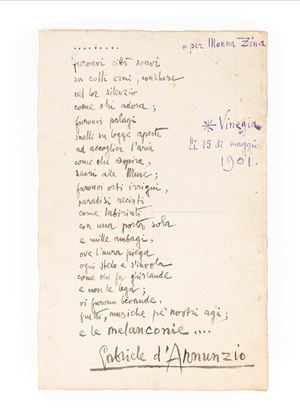 .........
furonvi città soavi
su colli ermi, concluse
nel lor silenzio
come chi adora;
furonvi palagi
snelli su logge aperte
ad accoglier l'aria
come chi respira,
sacri alle Muse;
furonvi orti irrigui,
paradisi recinti
come labirinti
con una porta sola
e mille ambagi,
ove l'aura piega
ogni stelo e s'invola
come chi fa ghirlande
e non le lega;
vi furono bevande,
frutti, musiche pe' nostri agi;
e le melanconie ....
Gabriele d'Annunzio
per Monna Zina
Vinegia
li 15 di maggio
1901.